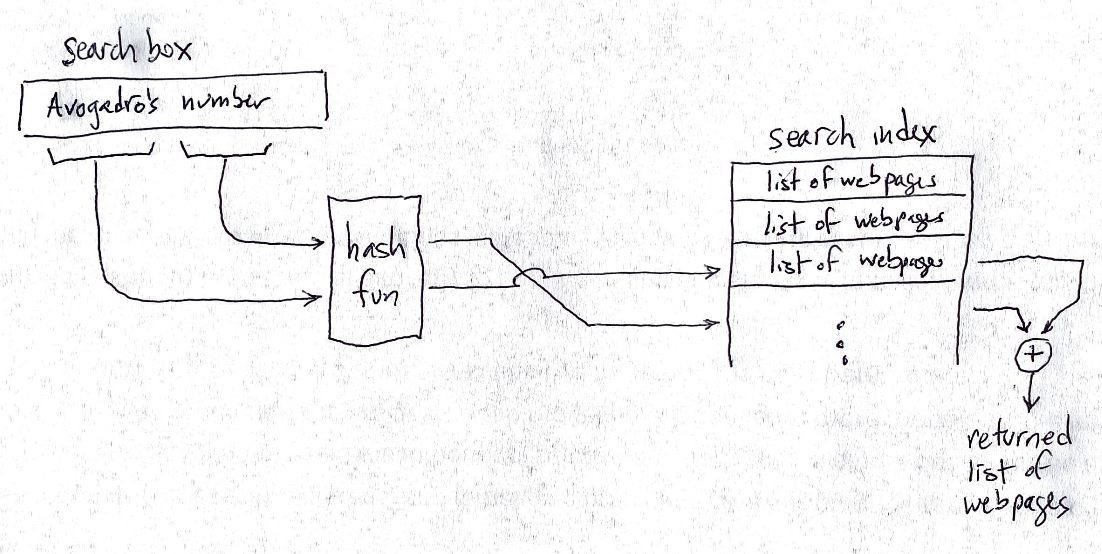 search box
Avogadro's number
hash
fun
search index
list of webpages
list of webpages
list of webpages
+
returned
list of
webpages